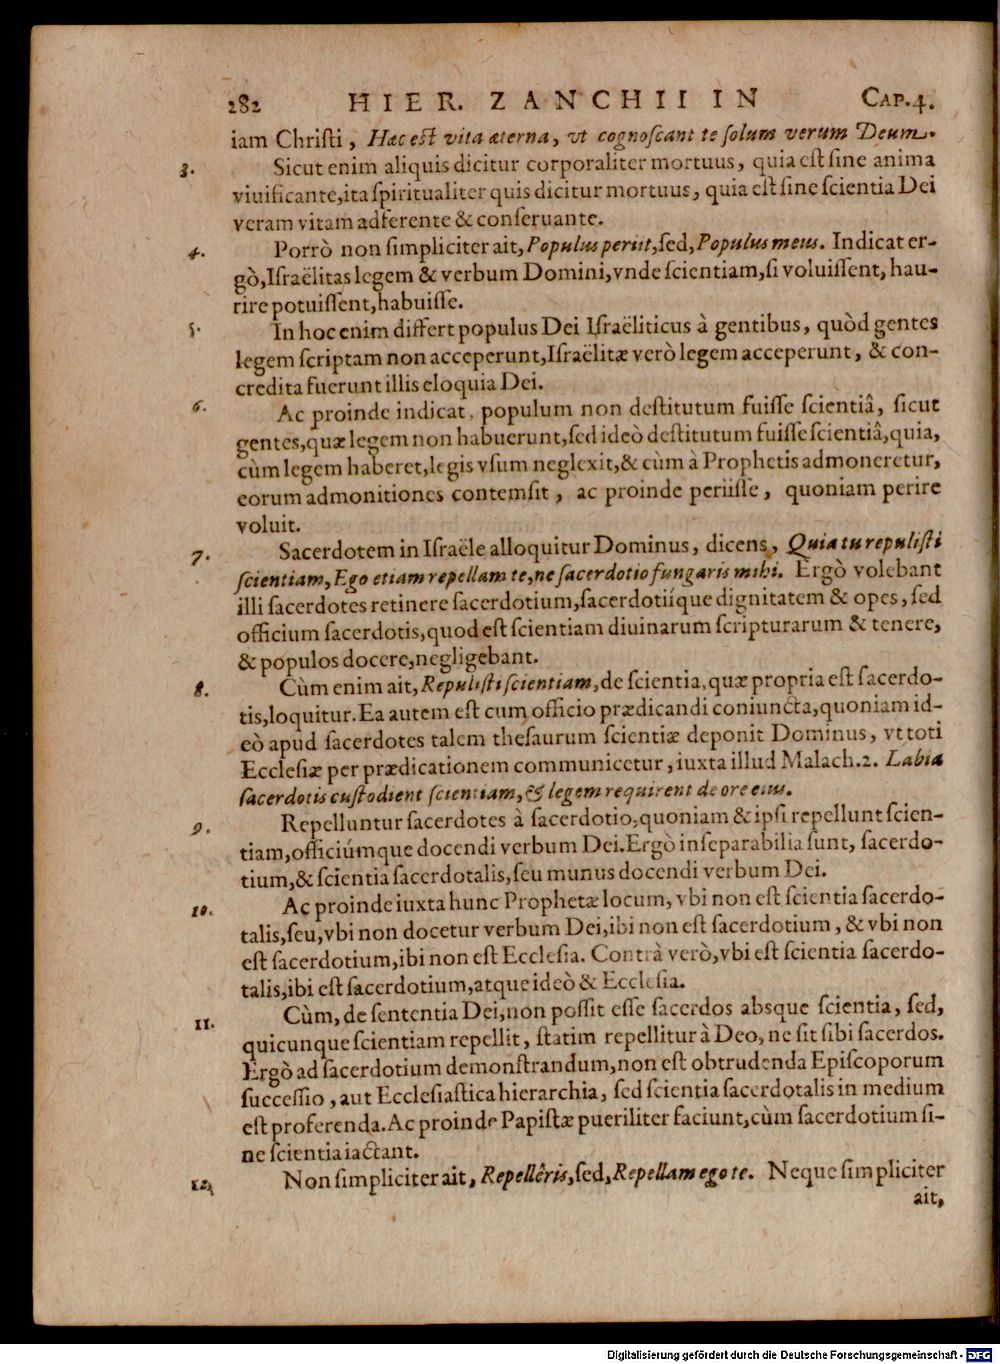 282 HIER. ZANCHII IN CAP. 4.
iam Christi, Hæc est vita æterna, vt cognoscant te solum verum Deum.
3. Sicut enim aliquis dicitur corporaliter mortuus, quia est sine anima
viuificante, ita spiritualiter quis dicitur mortuus, quia est sine scientia Dei
veram vitam adferente & conseruante.
4. Porrò non simpliciter ait, Populus periit, sed, Populus meus. Indicat er-
gò, Israëlitas legem & verbum Domini, vnde scientiam, si voluissent, hau-
rire potuissent, habuisse.
5. In hoc enim differt populus Dei Israëliticus à gentibus, quòd gentes
legem scriptam non acceperunt, Israëlitæ verò legem acceperunt, & con-
credita fuerunt illis eloquia Dei.
6. Ac proinde indicat, populum non destitutum fuisse scientiâ, sicut
gentes, quæ legem non habuerunt, sed ideò destitutum fuisse scientiâ, quia,
cùm legem haberet, legis vsum neglexit, & cùm à Prophetis admoneretur,
eorum admonitiones contemsit, ac proinde periisse, quoniam perire
voluit.
7. Sacerdotem in Israële alloquitur Dominus, dicens, Quia tu repulisti
scientiam, Ego etiam repellam te, ne sacerdotio fungaris mihi. Ergò volebant
illi sacerdotes retinere sacerdotium, sacerdotiíque dignitatem & opes, sed
officium sacerdotis, quod est scientiam diuinarum scripturarum & tenere,
& populos docere, negligebant.
8. Cùm enim ait, Repulisti scientiam, de scientia, quæ propria est sacerdo-
tis, loquitur. Ea autem est cum officio prædicandi coniuncta, quoniam id-
eò apud sacerdotes talem thesaurum scientiæ deponit Dominus, vt toti
Ecclesiæ per prædicationem communicetur, iuxta illud Malach. 2. Labia
sacerdotis custodient scientiam, & legem requirent de ore eius.
9. Repelluntur sacerdotes à sacerdotio, quoniam & ipsi repellunt scien-
tiam, officiúmque docendi verbum Dei. Ergò inseparabilia sunt, sacerdo-
tium, & scientia sacerdotalis, seu munus docendi verbum Dei.
10. Ac proinde iuxta hunc Prophetæ locum, vbi non est scientia sacerdo-
talis, seu, vbi non docetur verbum Dei, ibi non est sacerdotium, & vbi non
est sacerdotium, ibi non est Ecclesia. Contrà verò, vbi est scientia sacerdo-
talis, ibi est sacerdotium, atque ideò & Ecclesia.
11. Cùm, de sententia Dei, non possit esse sacerdos absque scientia, sed,
quicunque scientiam repellit, statim repellitur à Deo, ne sit sibi sacerdos.
Ergò ad sacerdotium demonstrandum, non est obtrudenda Episcoporum
successio, aut Ecclesiastica hierarchia, sed scientia sacerdotalis in medium
est proferenda. Ac proinde Papistæ pueriliter faciunt, cùm sacerdotium si-
ne scientia iactant.
12. Non simpliciter ait, Repellêris, sed, Repellam ego te. Neque simpliciter
ait,
Digitalisierung gefördert durch die Deutsche Forschungsgemeinschaft - DFG